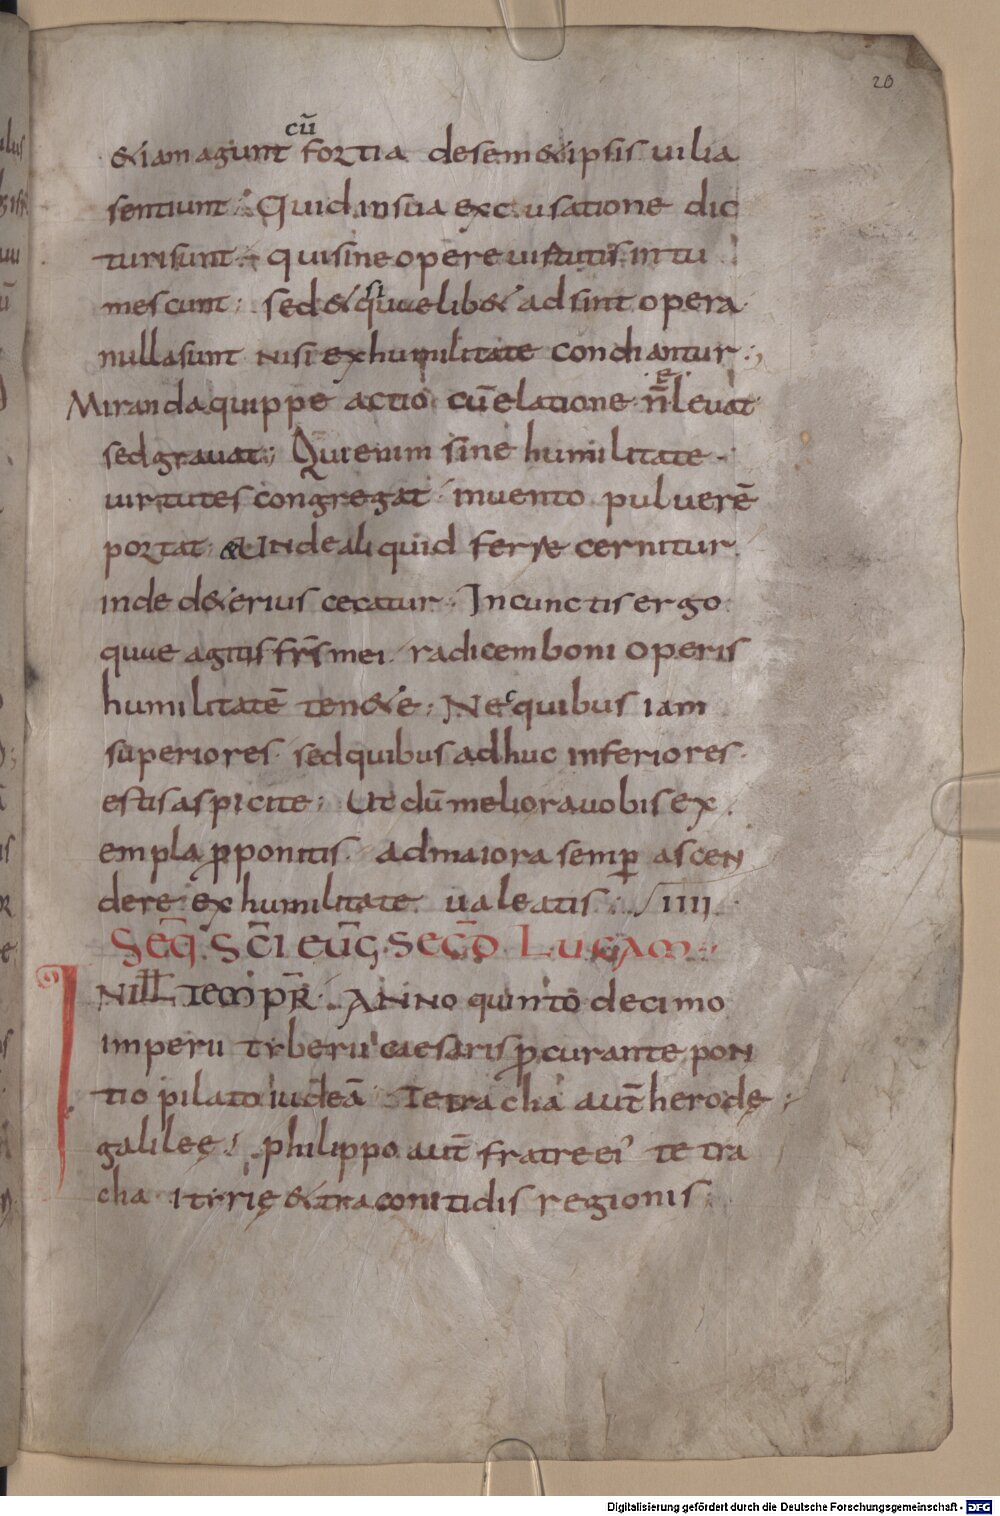 20
cū
&iam agunt fortia desem&ipsis uilia
sentiunt. Quid insua excusatione dic
turisunt. quisine opere uirtutis intu
mescunt; sed& siquuelib& adsint opera
nullasunt nisi exhumilitate condiantur;
Miranda quippe actio cū elatione n̄ leuat
sedgrauat; Qui enim sine humilitate
uirtutes congregat inuento puluerē
portat. &unde aliquid ferre cernitur.
inde d&erius cecatur. Incunctis ergo
quue agitis fr̄s mei. radicem boni operis
humilitatē ten&e; Nec quibus iam
superiores. sed quibus adhuc inferiores.
estis aspicite; Ut dū meliora uobis ex
empla ꝓponitis. admaiora semꝑ ascen
dere exhumilitate ualeatis. IIII
Seq̄. S̄CI EUḠ. SEC̄D LUCAM
INILL TEMPR̄. ANNO quinto decimo
imperii tyberii caesaris ꝓcurante pon
tio pilato iudeā Tetracha aut̄ herode
galileę. philippo aut̄ fratre ei' tetra
cha ityrię &traconitidis regionis
Digitalisierung gefördert durch die Deutsche Forschungsgemeinschaft - DFG